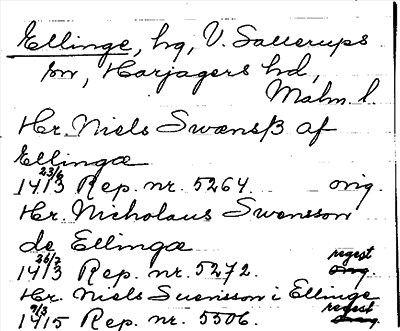 Ellinge, hg, V. Sallerups
sn, Harjagers hd,
Malm. l.
Hr. Niels Swænsß af
Ellingæ
23/6 1413 Rep. nr. 5264. orig.
Hr. Nicholaus Swensson
de Ellingæ
26/7 1413 Rep. nr. 5272. regest
Hr. Niels Suensson i Ellinge
9/3 1415 Rep. nr. 5506. regest